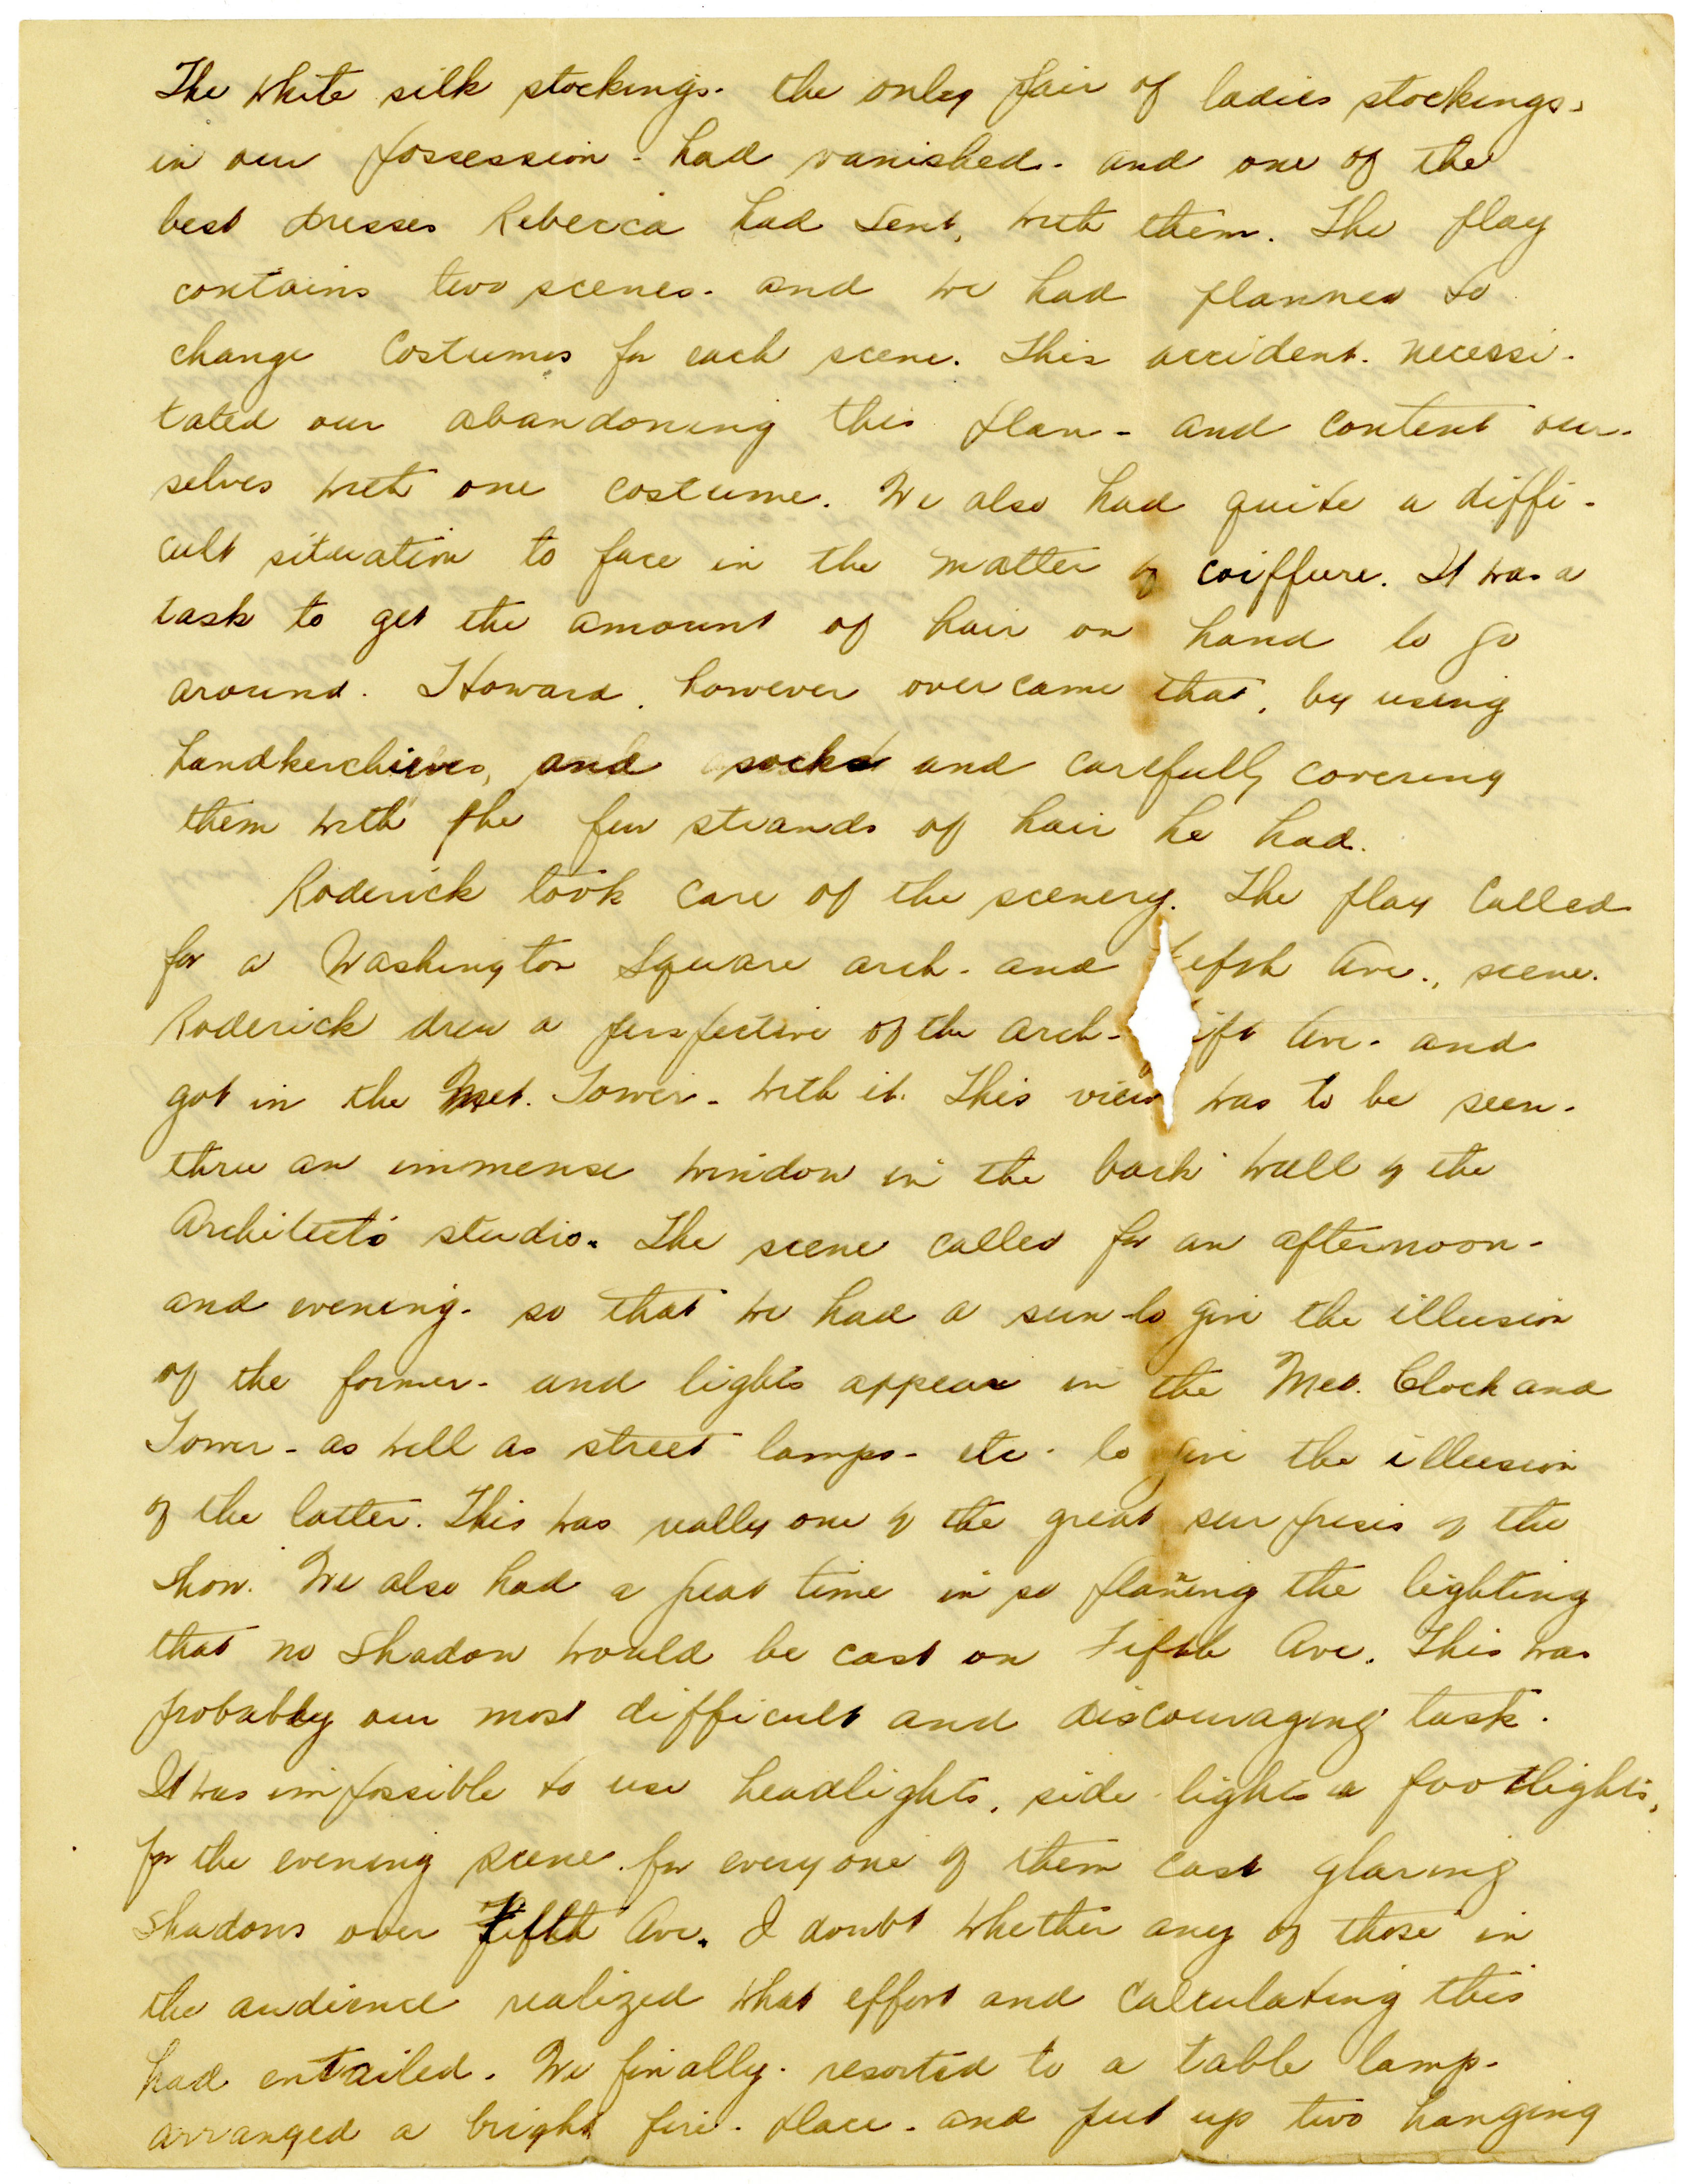 The white silk stockings - the only pair of ladies stockings -
in our possession - had vanished - and one of the
best dresses Rebecca had sent, with them. The play
contains two scenes - and we had planned to
change costumes for each scene. This accident - necessi-
tated our abandoning this plan - and content our-
selves with one costume. We also had quite a diffi-
cult situation to face in the matter of coiffure. It was a
task to get the amount of hair on hand to go
around. Howard, however overcame that, by using
handkerchieves, and socks and carefully covering
them with the few strands of hair he had.
Roderick took care of the scenery. The play called
for a Washington Square arch - and Ave., scene.
Roderick drew a perspective of the arch - Ave - and
got in the Met. Tower - with it. This view was to be seen -
thru an immense window in the back wall of the
Architect's studio. The scene called for an afternoon -
and evening - so that we had a sun to give the illusion
of the former - and lights appear in the Met. Clock and
Tower - as well as street lamps - etc - to give the illusion
of the latter. This was really one of the great surprises of the
show. We also had a great time in so planing the lighting
that no shadow would be cast on Fifth Ave. This was
probably our most difficult and discouraging task.
It was impossible to use headlights, side lights or footlights,
for the evening scene for everyone of them cast glaring
shadows over Fifth Ave. I doubt whether any of those in
the audience realized what effort and calculating this
had entailed. We finally - resorted to a table lamp -
arranged a bright fire-place - and put up two hanging